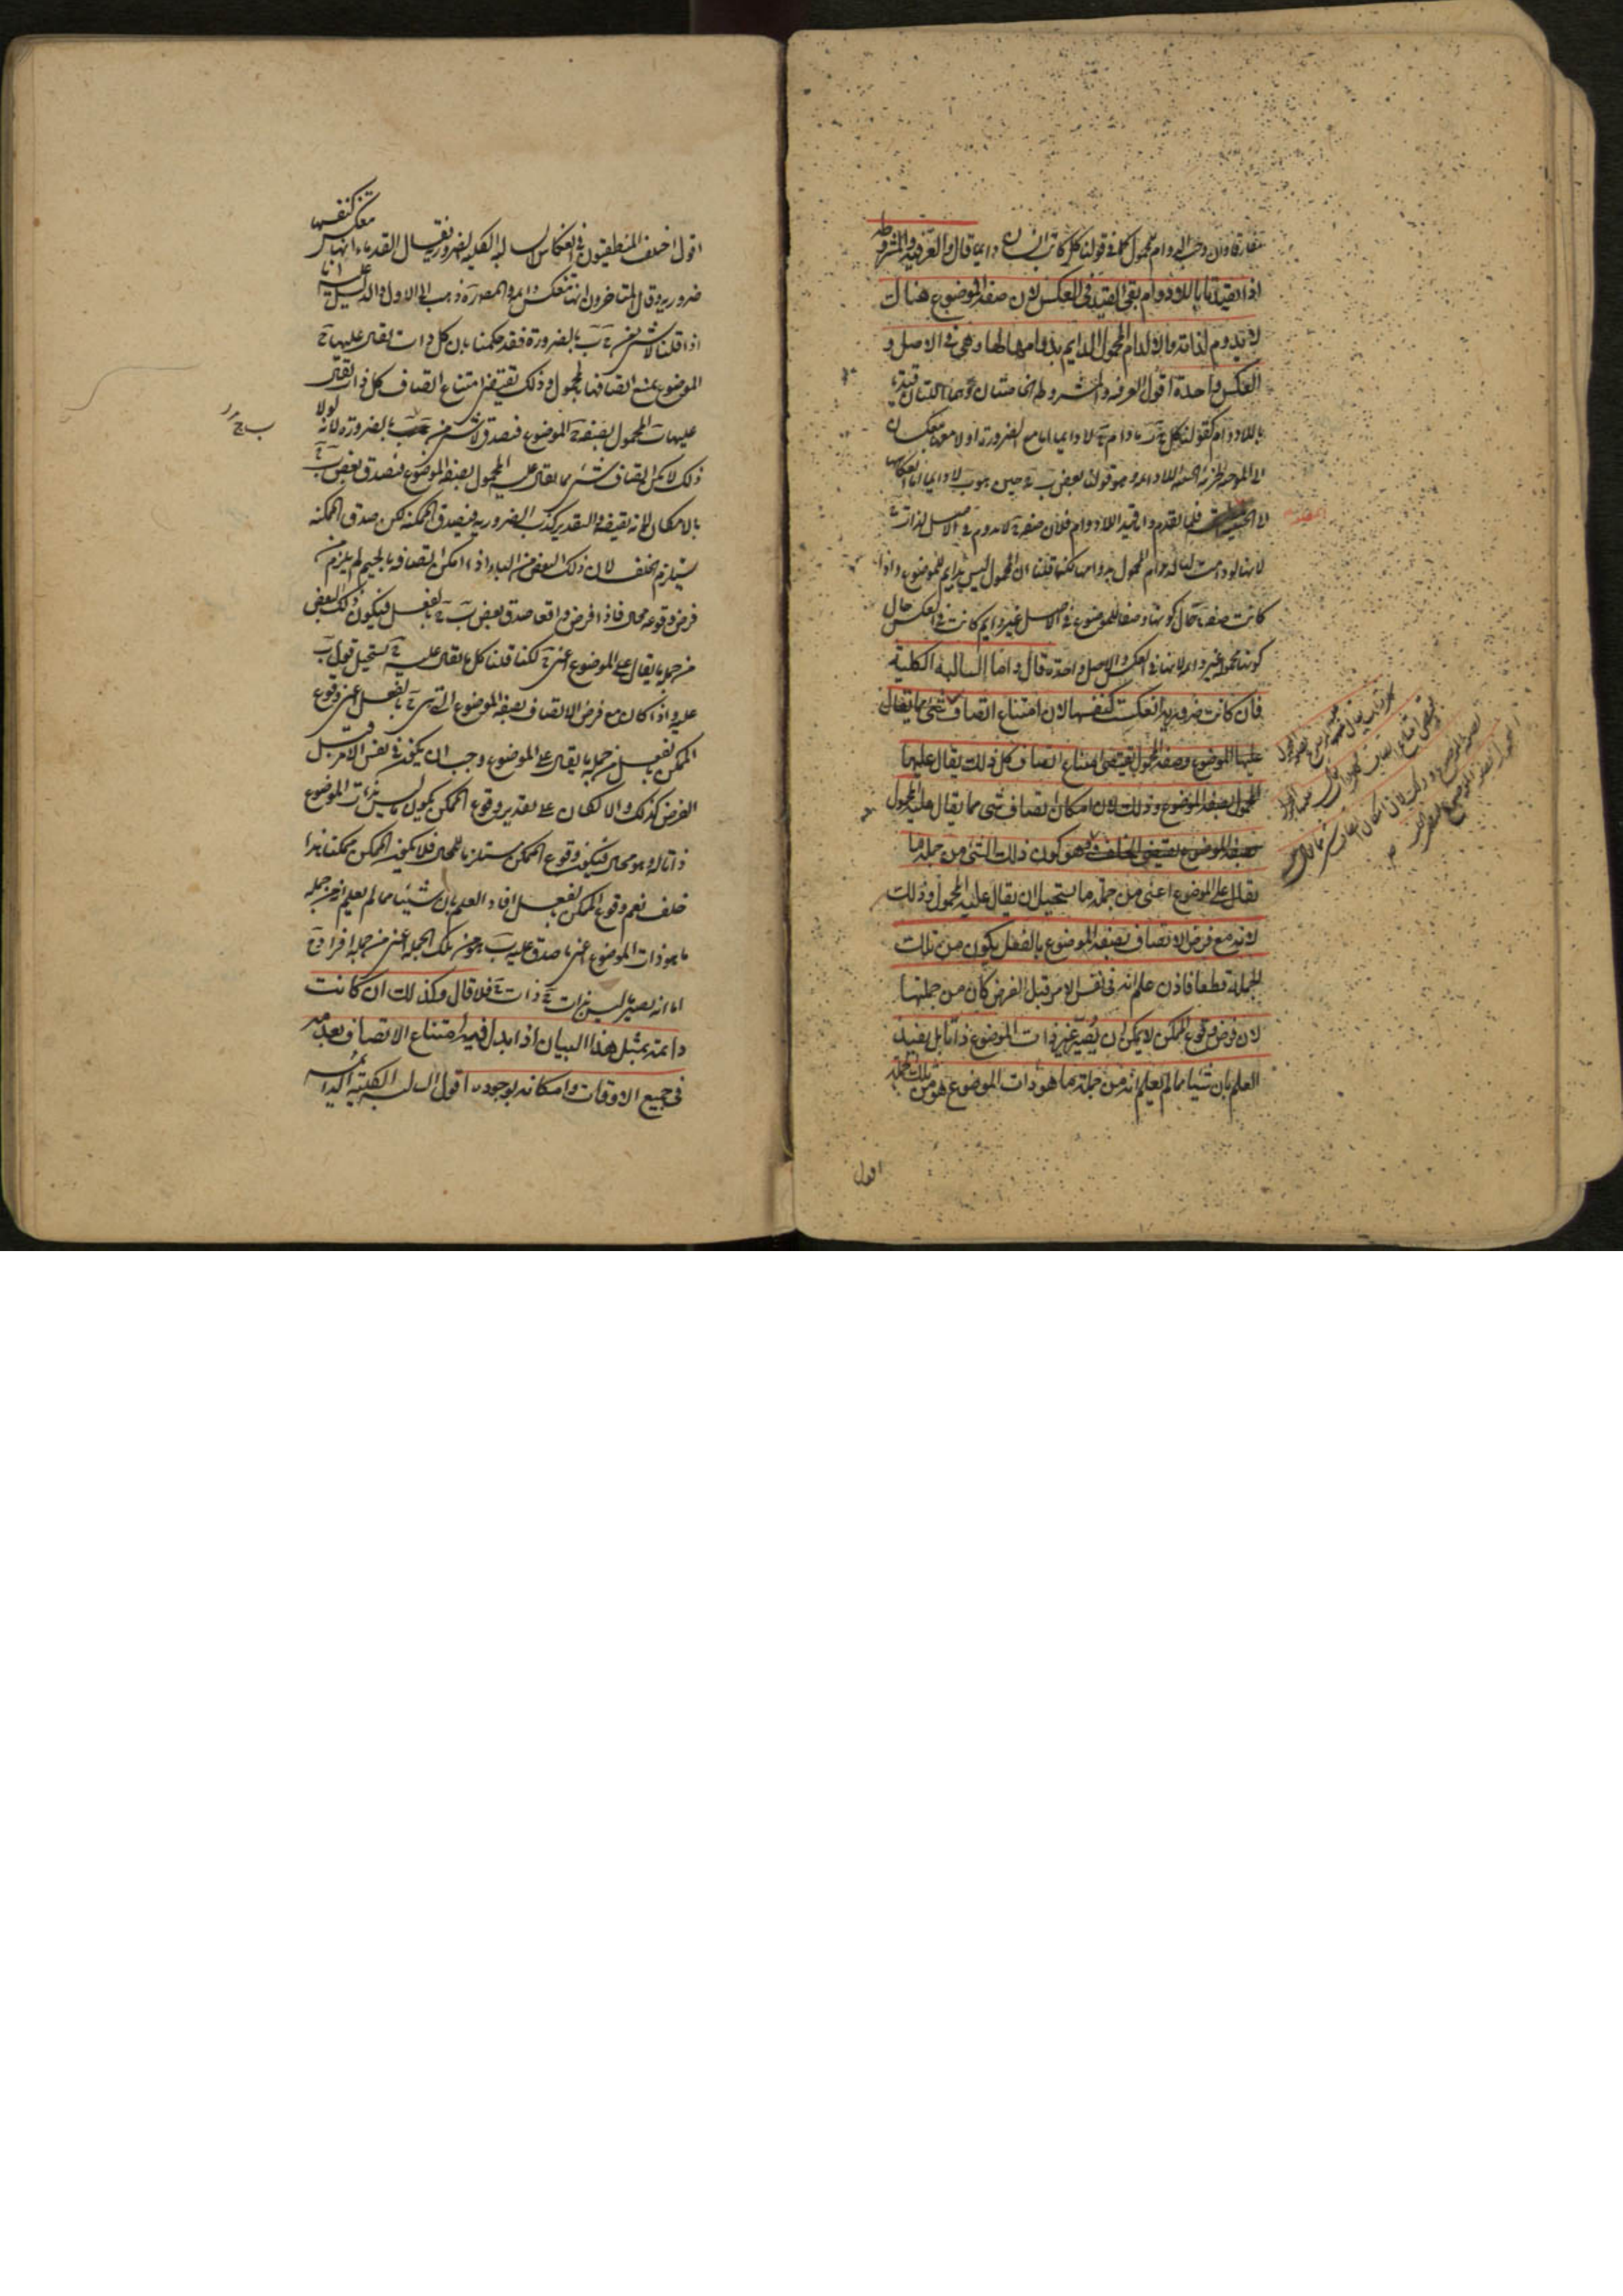 مفارقا وان وجب الدوام للمحمول كما فى قولنا كل كاتب انسان دايما قال والعرفية والمشروطة
اذا قيدتا باللادوام بقى القيد فى العكس لان صفة الموضوع هناك
لا تدوم لذاته والا لدام المحمول الدايم بدوامها لها وهى فى الاصل و
العكس واحدة اقول العرفية والمشروطة الخاصتان وهما اللتان قيدتا
باللادوام كقولنا كل ج ب ما دام ج لا دايما اما مع الضرورة اولا معها تنعكسان
الى الموجبة الجزئية الحينية اللادائمة وهو قولنا بعض ب ج حين هو ب لا دايما اما انعكاسها
الى الحينية فلما تقدم واما قيد اللادوام فلان صفة ج لا تدوم فى الاصل لذات
لانها لو دامت لها لدام المحمول بدوامها لكنا قلنا ان المحمول ليس بدايم للموضوع واذا
كانت صفة ج حال كونها وصفا للموضوع فى الاصل غير دايم كانت فى العكس حال
كونها محمولا غير دايم لانها فى العكس والاصل واحدة قال واما السالبة الكلية
فان كانت ضرورية انعكست كنفسها لان امتناع اتصاف شئ مما يقال
عليها الموضوع بصفة المحمول يقتضى امتناع اتصاف كل ذات يقال عليها
المحمول بصفة الموضوع وذلك لان امكان اتصاف شئ مما يقال عليه المحمول
بصفة الموضوع يقتضى الخلف وهو كون ذلك الشئ من جملة ما
يقال على الموضوع اعنى من جملة ما يستحيل ان يقال عليه المحمول وذلك
لانه مع فرض الاتصاف بصفة الموضوع بالفعل يكون من تلك
الجملة قطعا فاذن علم انه فى نفس الامر قبل الفرض كان من جملتها
لان فرض وقوع الممكن لا يمكن ان يُصيّر غير ذات الموضوع ذاتا بل يفيد
العلم بان شيئا مما لم يعلم انه من جملة ما هو ذات الموضوع هو من تلك الجملة
اقول
اقول اختلف المنطقيون فى انعكاس السالبة الكلية الضرورية فقال القدماء انها تنعكس كنفسها
ضرورية وقال المتاخرون انها تنعكس دايمة والمصنف ذهب الى الاول والدليل عليه انا
اذا قلنا لا شئ من ج ب بالضرورة فقد حكمنا بان كل ذات يقال عليها ج
الموضوع يمتنع اتصافها بالمحمول وذلك يقتضى امتناع اتصاف كل ذات يقال
عليها ب المحمول بصفة ج الموضوع فيصدق لا شئ من ب ج بالضرورة لانه لولا
ب ج
ذلك لامكن اتصاف شئ مما يقال عليه المحمول بصفة الموضوع فيصدق بعض ب ج
بالامكان لانه نقيضه فى التقدير كذب الضرورية فيصدق الممكنة لكن صدق الممكنة
يستلزم الخلف لان ذلك البعض من الباء اذا امكن اتصافه بالجيم لم يلزم من
فرض وقوعه محال فاذا فرض واقعا صدق بعض ب ج بالفعل فيكون ذلك البعض
من جملة ما يقال على الموضوع اعنى ج لكنا قلنا كل ما يقال عليه ج يستحيل قول ب
عليه واذا كان مع فرض الاتصاف بصفة الموضوع التى هى ج بالفعل اعنى وقوع
الممكن بالفعل من جملة ما يقال على الموضوع وجب ان يكون فى نفس الامر قبل
الفرض كذلك والا لكان على تقدير وقوع الممكن يكون ما ليس بذات الموضوع
ذاتا له وهو محال فيكون وقوع الممكن مستلزما للمحال فلا يكون الممكن ممكنا هذا
خلف نعم وقوع الممكن بالفعل افاد العلم بان شيئا مما لم يعلم انه من جملة
ما هو ذات الموضوع اعنى ما صدق عليه ب هو من تلك الجملة اعنى من جملة افراد ج
اما انه يصير ما ليس بذات ج ذات ج فلا قال وكذلك ان كانت
دائمة بمثل هذا البيان اذا بدل فيه امتناع الاتصاف بعدمه
فى جميع الاوقات وامكانه بوجوده اقول السالبة الكلية الدائمة